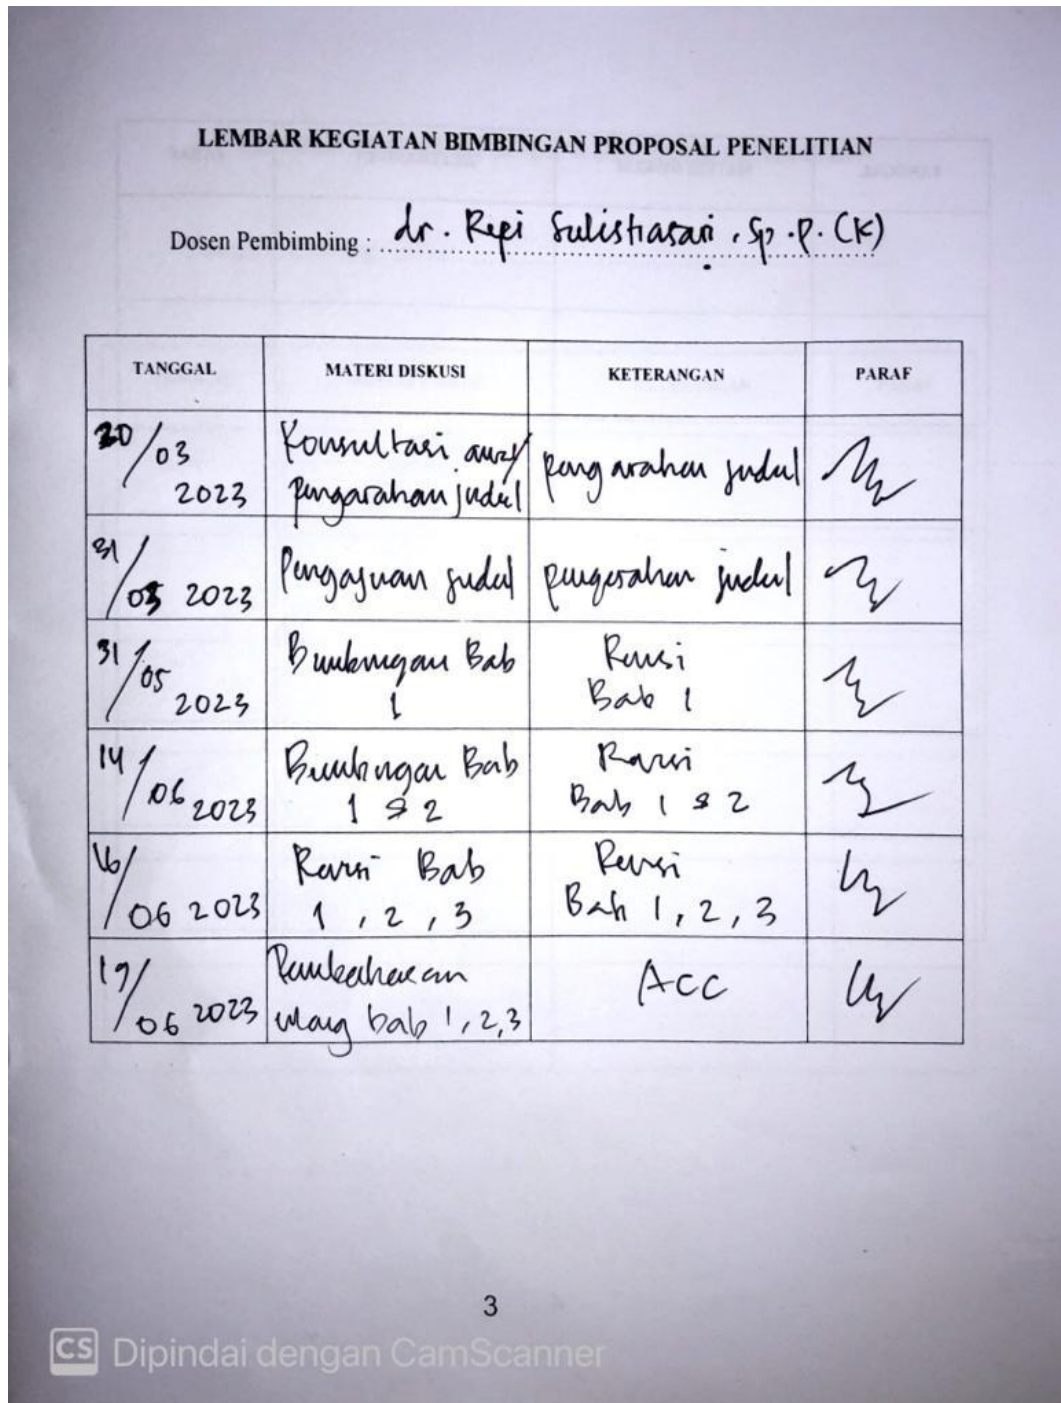 LEMBAR KEGIATAN BIMBINGAN PROPOSAL PENELITIAN
Dosen Pembimbing : dr. Repi Sulistiasari, Sp.P.(K)
TANGGAL MATERI DISKUSI KETERANGAN PARAF
20/03 2023 Konsultasi awal/ pengarahan judul pengarahan judul
31/03 2023 Pengajuan judul pengarahan judul
31/05 2023 Bimbingan Bab 1 Revisi Bab 1
14/06 2023 Bimbingan Bab 1 & 2 Revisi Bab 1 & 2
16/06 2023 Revisi Bab 1, 2, 3 Revisi Bab 1, 2, 3
19/06 2023 Pembahasan ulang bab 1, 2, 3 ACC
3
CS Dipindai dengan CamScanner